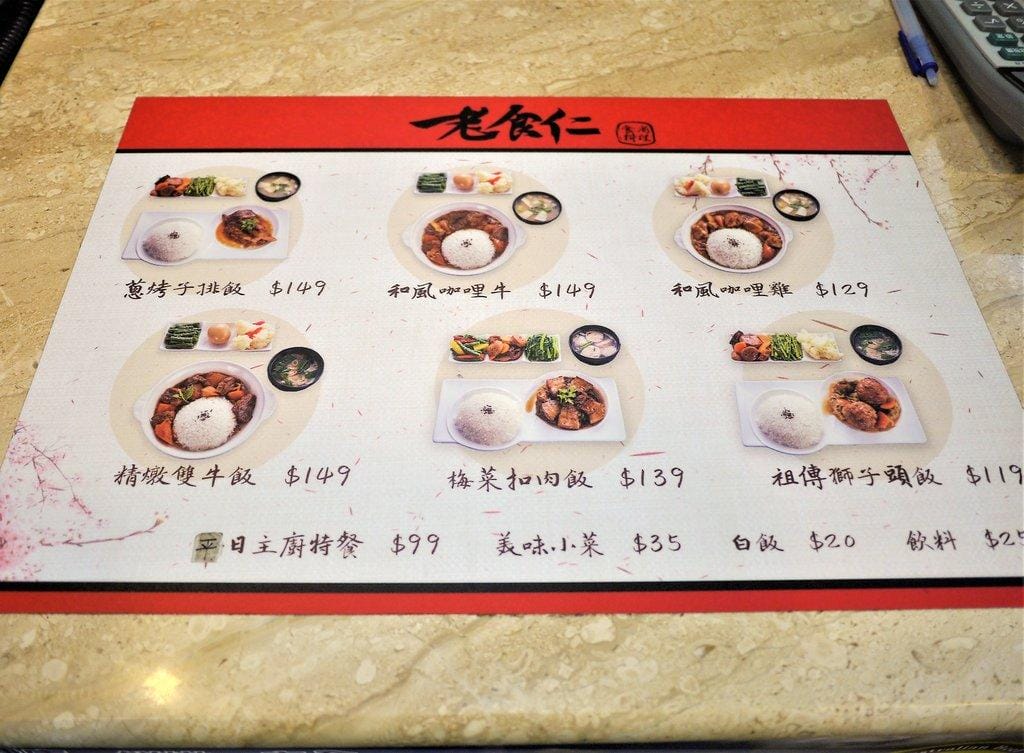 老食仁
蔥烤子排飯 $149
和風咖哩牛 $149
和風咖哩雞 $129
精燉雙牛飯 $149
梅菜扣肉飯 $139
祖傳獅子頭飯 $119
平日主廚特餐 $99 美味小菜 $35 白飯 $20 飲料 $25